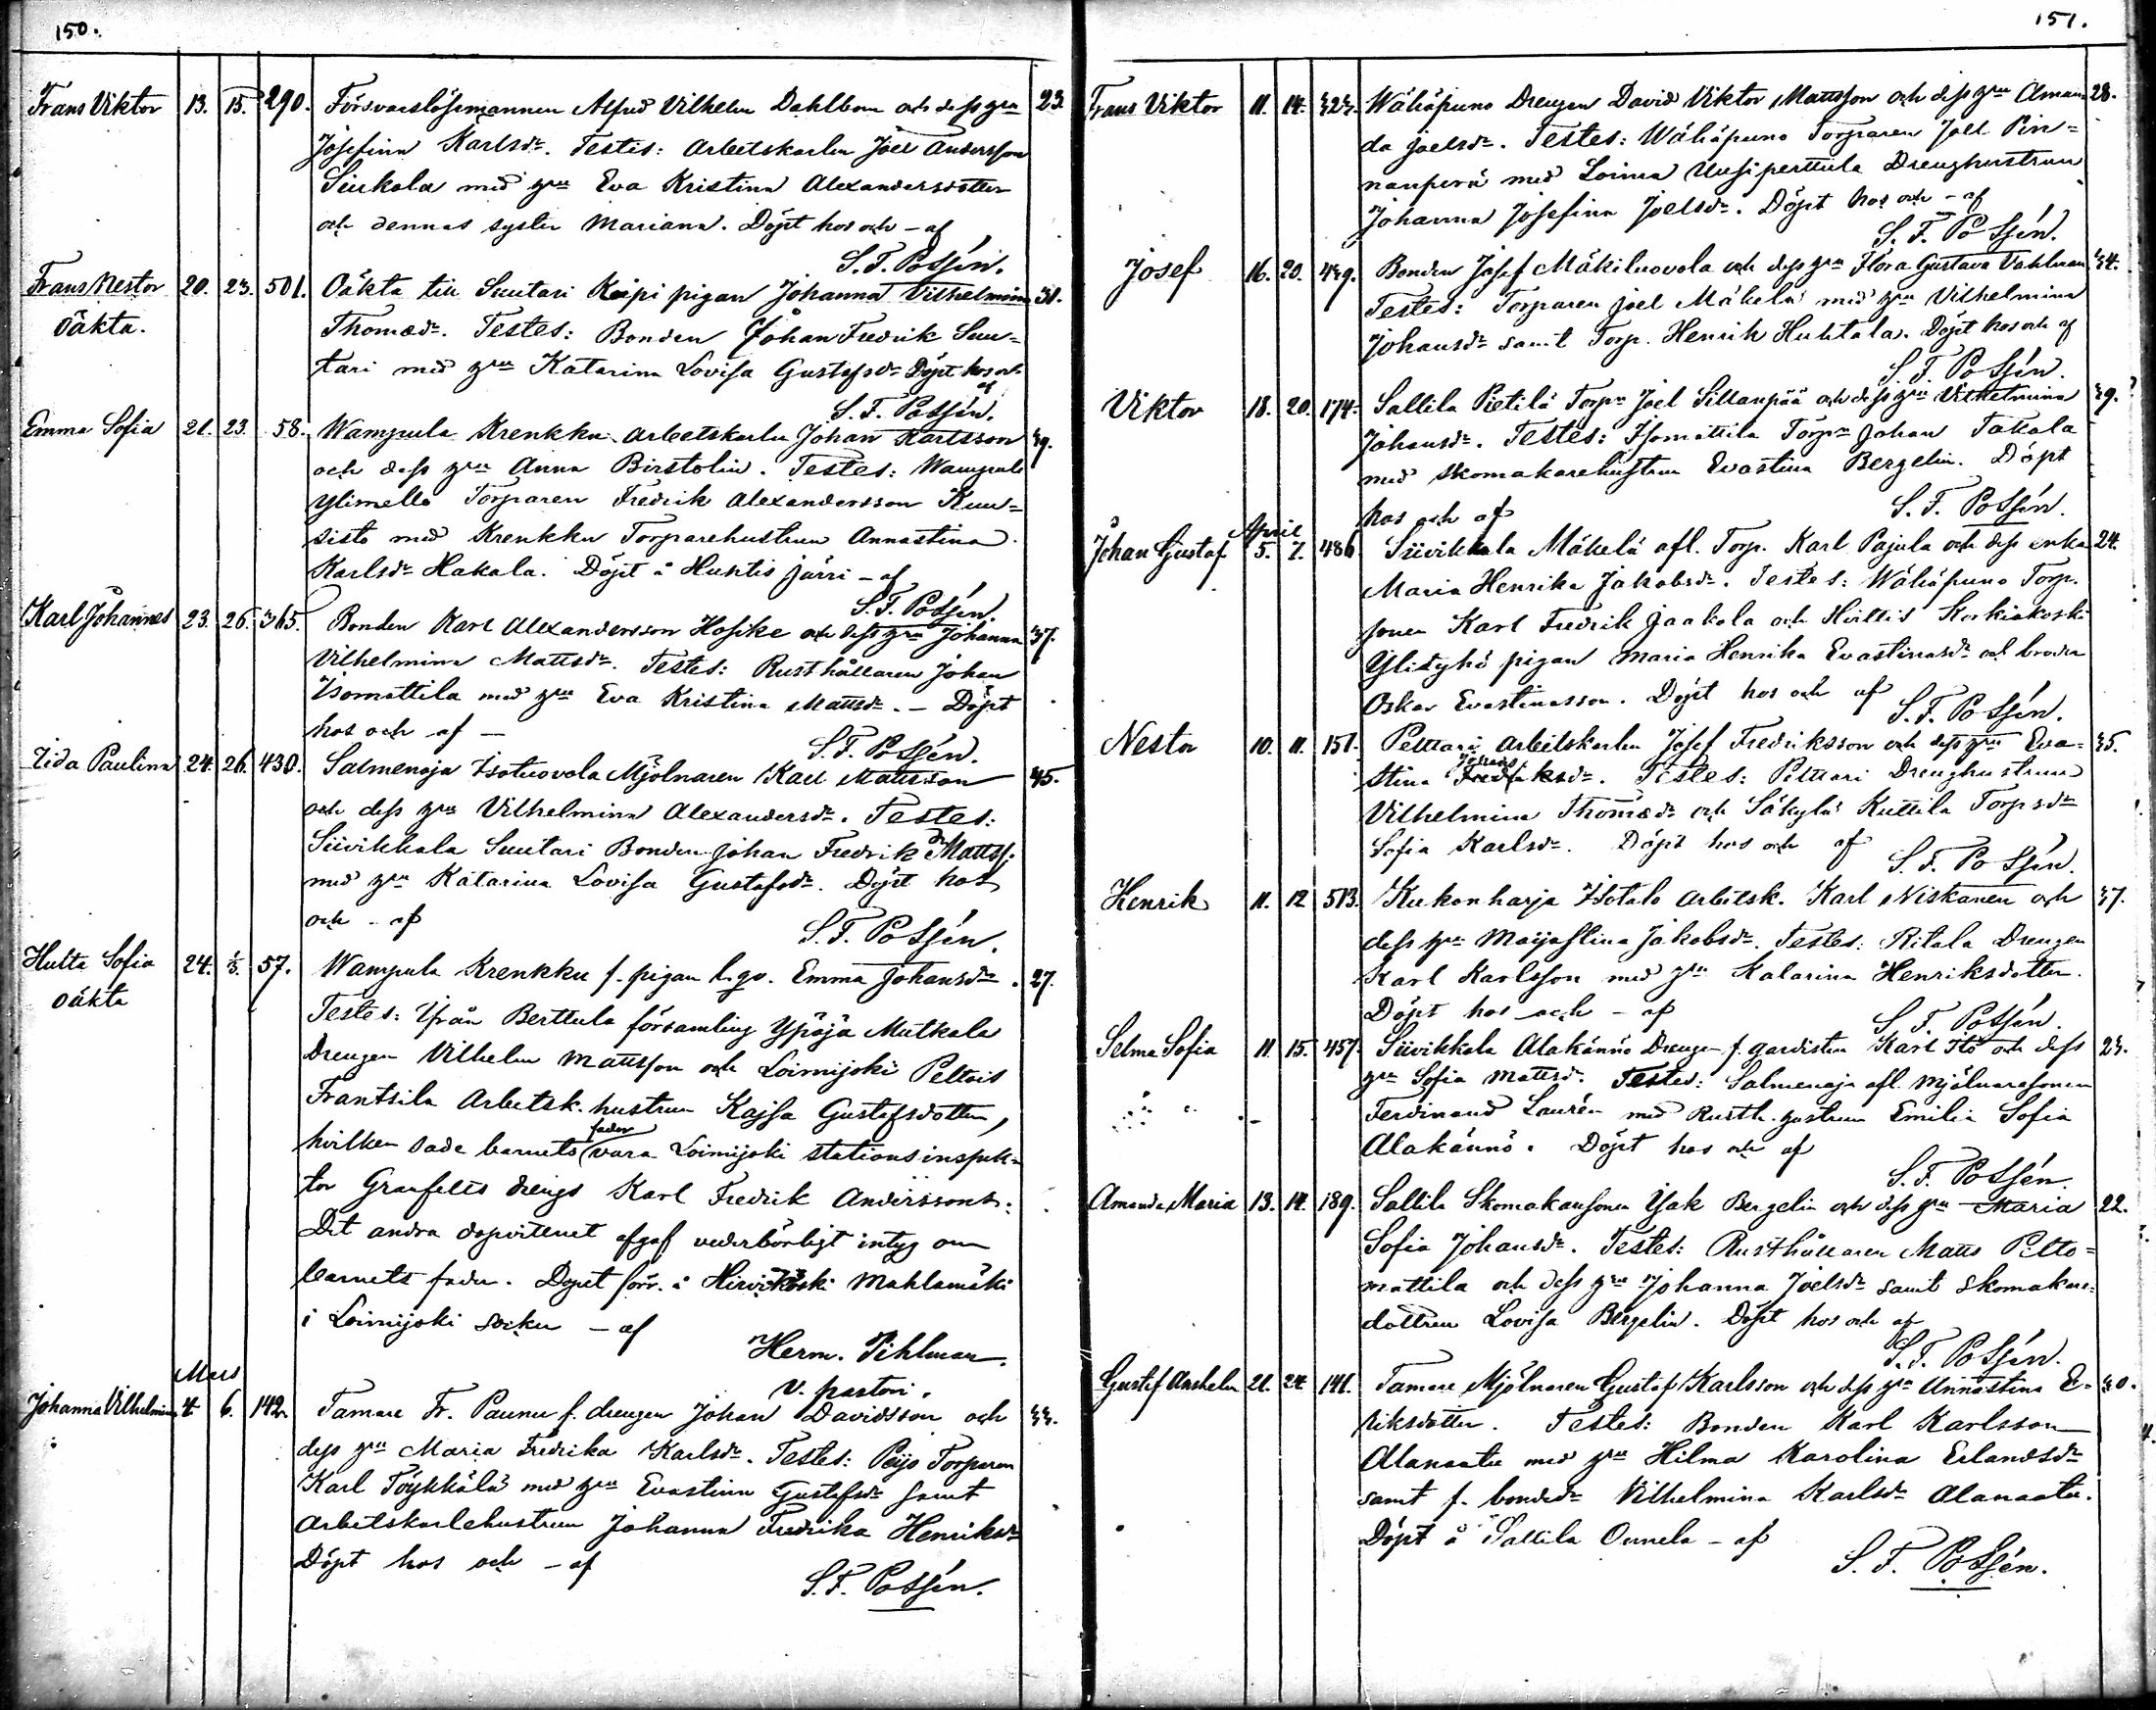 150.
Frans Viktor 13. 15. 290. Försvarslösemannen Alfred Vilhelm Dahlbom och dess hru 23.
Josefina Karlsdr. Testes: Arbetskarlen Joel Andersson
med hru Eva Kristina Alexandersdotter
och dennas syster Mariana. Döpt hos och – af
S. F. Possén.
Frans Nestor 20. 23. 501. Oäkta till Suutari Keipi pigan Johanna Vilhelmina 31.
oäkta. Thomædr. Testes: Bonden Johan Fredrik Suu=
tari med hru Katarina Lovisa Gustafsdr Döpt hos och
af
S. F. Possén.
Emma Sofia 21. 23. 58. Wampula Krenkku arbetskarlen Johan Karlsson 39.
och dess hru Anna Birstolin. Testes: Wampula
Ylimelle Torparen Fredrik Alexandersson Kuu=
sisto med Krenkku Torparehustrun Annastina
Karlsdr Hakala. Döpt å Huntis Järri – af
S. F. Possén.
Karl Johannes 23. 26. 365. Bonden Karl Alexandersson Hosike och dess hru Johanna 37.
Vilhelmina Mattsdr. Testes: Rusthållaren Johan
Isomattila med hru Eva Kristina Mattsdr. – Döpt
hos och af –
S. F. Possén.
Iida Paulina 24. 26. 430. Salmenoja Isotuovola Mjölnaren Karl Mattsson 45.
och dess hru Vilhelmina Alexandersdr. Testes:
Siivikkala Suutari Bonden Johan Fredrik Mattss.
med hru Katarina Lovisa Gustafsdr. Döpt hos
och – af
S. F. Possén.
Hulta Sofia 24. 57. Wampula Krenkku f. pigan l. qv. Emma Johansdr. 27.
oäkta Testes: Ifrån Berttula församling Ypäjä Mutkala
Drengen Vilhelm Mattsson och Loimijoki Peltois
Frantsila Arbetsk. hustrun Kajsa Gustafsdotter,
fader
hvilken sade barnets vara Loimijoki stationsinspek=
tor Granfelts drengs Karl Fredrik Anderssons.
Det andra dopvittnet afgaf vederbörligt intyg om
barnets fader. Döpt förr. i Hirvikoski Mahlamäki
i Loimijoki socken – af
Herm. Pihlman.
v. pastor.
Mars
Johanna Vilhelmina 4. 6. 142. Tamare Fr. Paunu f. drengen Johan Davidsson och 33.
dess hru Maria Fredrika Karlsdr. Testes: Peijo Torparen
Karl Töykkälä med hru Evastina Gustafsdr samt
Arbetskarlehustrun Johanna Fredrika Henriksdr
Döpt hos och – af
S. F. Possén.
151.
Frans Viktor 11. 14. 323. Wähäpuno Drengen David Viktor Mattsson och dess hru Aman= 28.
da Joelsdr. Testes: Wähäpuno Torparen Joel Pin=
nanperä med Loima Uusiperttula Drenghustrun
Johanna Josefina Joelsdr. Döpt hos och – af
S. F. Possén.
Josef 16. 20. 439. Bonden Josef Mäkiluovola och dess hru Flora Gustava Dahlman 34.
Testes: Torparen Joel Mäkelä med hru Vilhelmina
Johansdr samt Torp. Henrik Huhtala. Döpt hos och af
S. F. Possén.
Viktor 18. 20. 174. Sallila Pietilä Torpn Joel Sillanpää och dess hru Vilhelmina 39.
Johansdr. Testes: Isomattila Torpn Johan Takala
med skomakarehustrun Evastina Bergelin. Döpt
hos och af S. F. Possén.
April
Johan Gustaf 5. 7. 486. Siivikkala Mäkelä afl. Torp. Karl Pajula och dess enka 24.
Maria Henrika Jakobsdr. Testes: Wähäpuno Torp.
sonen Karl Fredrik Jaakola och Korkiakoski
Ylistyhö pigan Maria Henrika Evastinasdr och brodern
Oskar Evastinasson. Döpt hos och af
S. F. Possén.
Nestor 10. 11. 151. Pelttari Arbetskarlen Josef Fredriksson och dess hru Eva= 35.
Johans
stina Fredriksdr. Testes: Pelttari Drenghustrun
Vilhelmina Thomædr och Säkylä Kuttila Torpsdr
Sofia Karlsdr. Döpt hos och af
S. F. Possén.
Henrik 11. 12 513. Kukonharja Isotalo Arbetsk. Karl Niskanen och 37.
dess hru Majastina Jakobsdr. Testes: Ritala Drengen
Karl Karlsson med hru Katarina Henriksdotter.
Döpt hos och – af
S. F. Possén.
Selma Sofia 11. 15. 457. Siivikkala Alakännö Drengen f. gardisten Karl Itö och dess 23.
hru Sofia Mattsdr. Testes: Salmenoja afl. mjölnaresonen
Ferdinand Laurén med Rusth. hustrun Emilia Sofia
Alakännö. Döpt hos och af
S. F. Possén.
Amanda Maria 13. 14. 189. Sallila Skomakaresonen Isak Bergelin och dess hru Maria 22.
Sofia Johansdr. Testes: Rusthållaren Matts Pelto=
mattila och dess hru Johanna Joelsdr samt skomakare=
dottren Lovisa Bergelin. Döpt hos och af
S. F. Possén.
Gustaf Anshelm 21. 24. 141. Tamare Mjölnaren Gustaf Karlsson och dess hru Annastina E= 30.
riksdotter. Testes: Bonden Karl Karlsson
Alanaatu med hru Hilma Karolina Erlandsdr
samt f. bondedr Vilhelmina Karlsdr Alanaatu.
Döpt å Sallila Onnela – af
S. F. Possén.